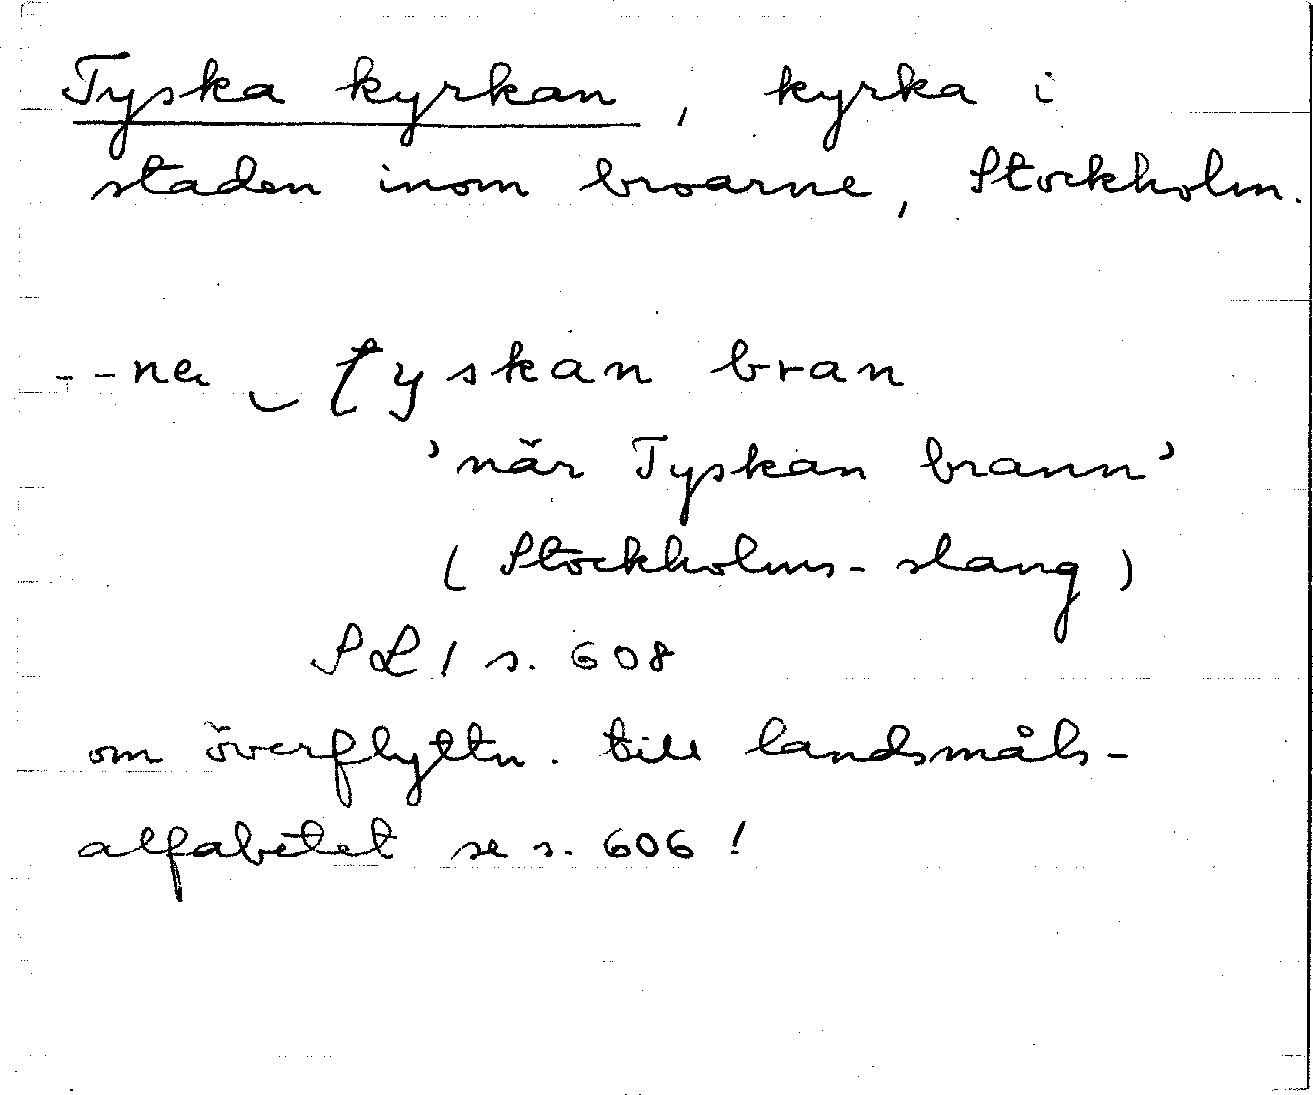 Tyska kyrkan, kyrka i
staden inom broarne, Stockholm.
--næ ‿ tyskan bran
'när Tyskan brann'
(Stockholms-slang)
SL 1 s. 608
om överflyttn. till landsmåls-
alfabetet se s. 606!